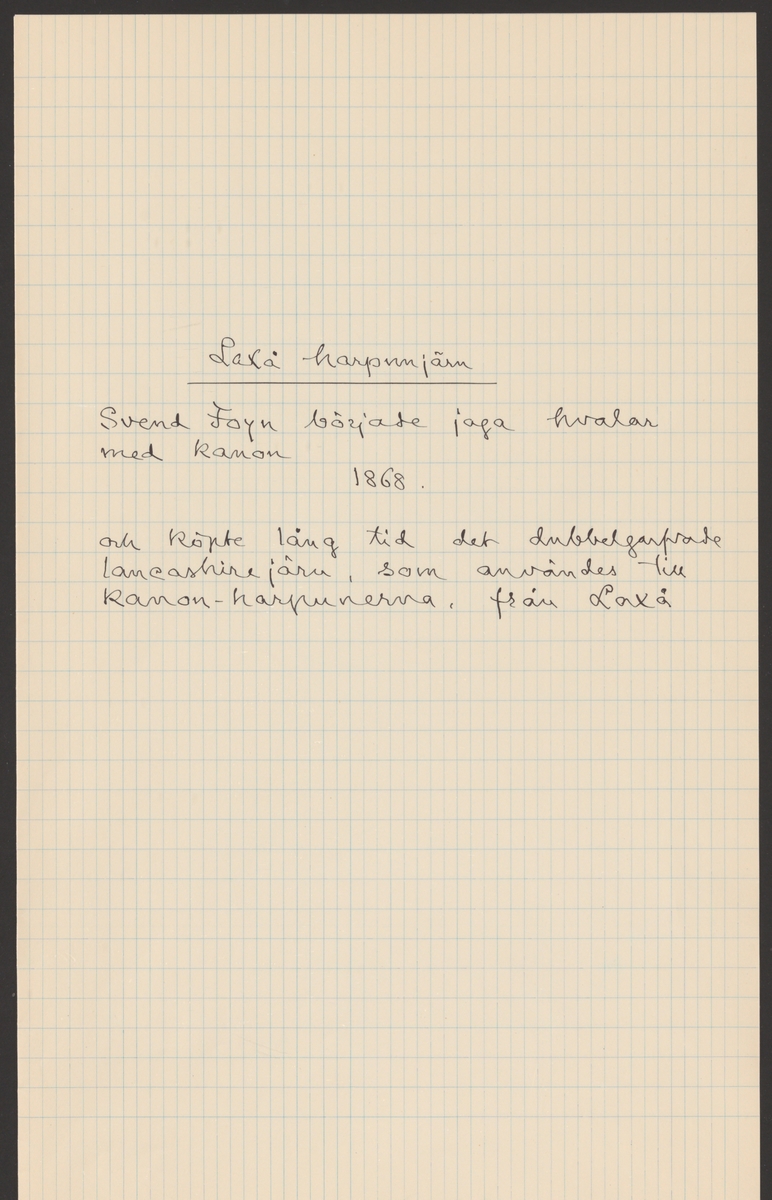 Laxå harpunjärn
Svend Foyn började jaga hvalar
med kanon
1868.
och köpte lång tid det dubbelgarfvade
lancashirejärn, som användes till
kanon-harpunerna, från Laxå